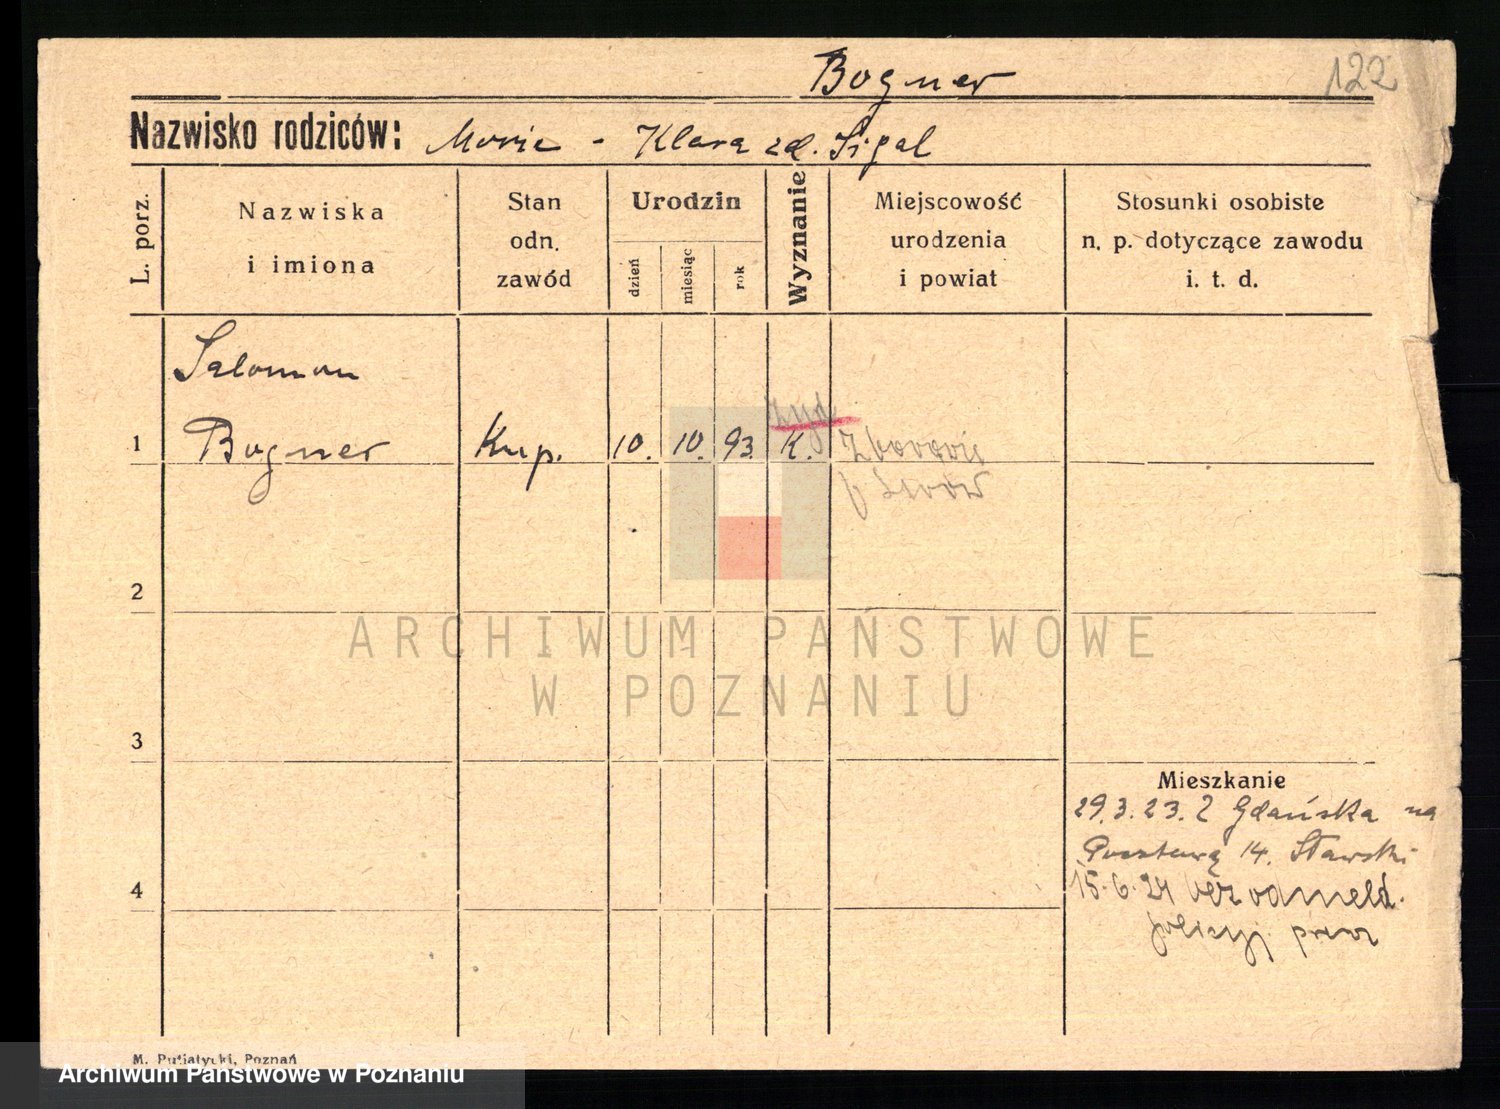 Bogner
122
Nazwisko rodziców: Moric - Klara zd. Sigal
L. porz.
Nazwiska
i imiona
Stan
odn.
zawód
Urodzin
dzień
miesiąc
rok
Wyznanie
Miejscowość
urodzenia
i powiat
Stosunki osobiste
n. p. dotyczące zawodu
i. t. d.
Salomon
żyd
1 Bogner Kup. 10. 10. 93. K. Zborowie
p Lwów
2
ARCHIWUM PAŃSTWOWE
W POZNANIU
3
Mieszkanie
29.3.23. Z Gdańska na
Pocztową 14. Stawski
4
15.6.24 bez odmeld.
policyj
M. Putiatycki, Poznań
Archiwum Państwowe w Poznaniu